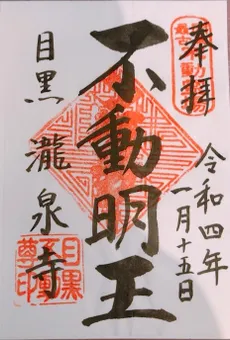 奉拝
令和四年
一月十五日
不動明王
目黒 瀧泉寺
目黒
不動
尊印